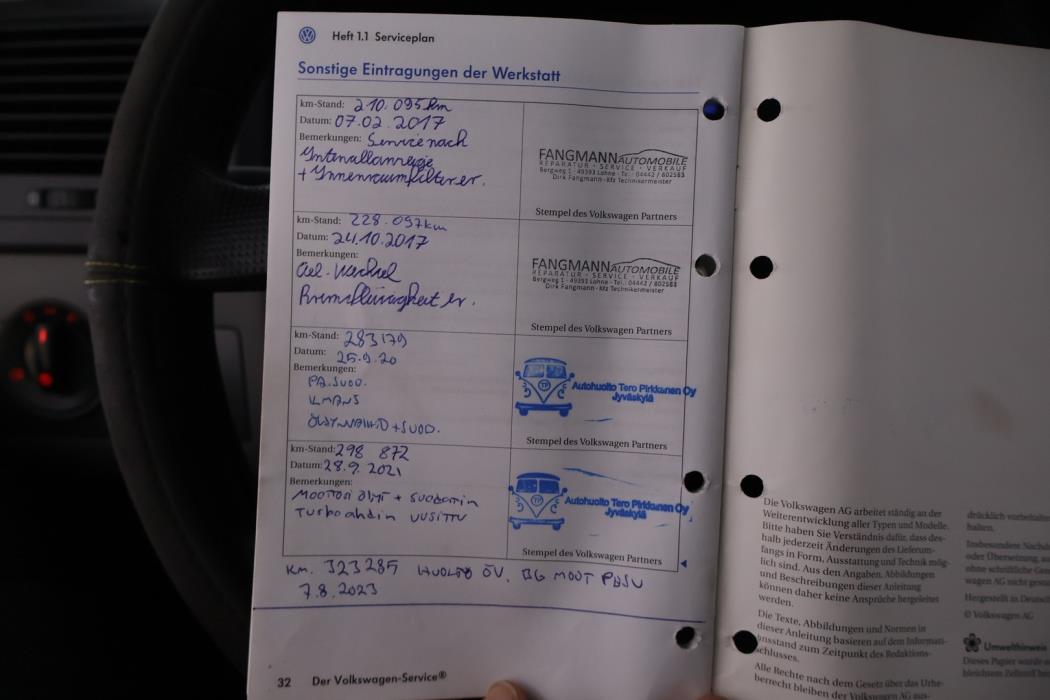 Heft 1.1 Serviceplan
Sonstige Eintragungen der Werkstatt
km-Stand: 210.095km
Datum: 07.02.2017
Bemerkungen: Service nach
Intervallanzeige
+ Innenraumfilter er.
FANGMANN AUTOMOBILE
REPARATUR - SERVICE - VERKAUF
Bergweg 1 · 49393 Lohne · Tel.: 04442 / 802583
Dirk Fangmann - Kfz Technikermeister
Stempel des Volkswagen Partners
km-Stand: 228.097km
Datum: 24.10.2017
Bemerkungen:
Oel-Wechsel
Bremsflüssigkeit er.
FANGMANN AUTOMOBILE
REPARATUR - SERVICE - VERKAUF
Bergweg 1 · 49393 Lohne · Tel.: 04442 / 802583
Dirk Fangmann - Kfz Technikermeister
Stempel des Volkswagen Partners
km-Stand: 283179
Datum: 25.9.20
Bemerkungen:
PA.SUOD.
ILMANS
ÖLJYNVAIHTO + SUOD.
TP
Autohuolto Tero Pirkkanen Oy
Jyväskylä
Stempel des Volkswagen Partners
km-Stand: 298 872
Datum: 28.9.2021
Bemerkungen:
MOOTTORI ÖLJYT + SUODATIN
TURBOAHDIN UUSITTU
TP
Autohuolto Tero Pirkkanen Oy
Jyväskylä
Stempel des Volkswagen Partners
KM. 323285 HUOLTO ÖV. BG MOOT PESU
7.8.2023
32 Der Volkswagen-Service®
Die Volkswagen AG arbeitet ständig an der
Weiterentwicklung aller Typen und Modelle.
Bitte haben Sie Verständnis dafür, dass des-
halb jederzeit Änderungen des Lieferum-
fangs in Form, Ausstattung und Technik mög-
lich sind. Aus den Angaben, Abbildungen
und Beschreibungen dieser Anleitung
können daher keine Ansprüche hergeleitet
werden.
Die Texte, Abbildungen und Normen in
dieser Anleitung basieren auf dem Informati-
onsstand zum Zeitpunkt des Redaktions-
schlusses.
Alle Rechte nach dem Gesetz über das Urhe-
berrecht bleiben der Volkswagen AG aus-
drücklich vorbehalten
halten.
Insbesondere Nachd
oder Übersetzung, au
ohne schriftliche Gen
wagen AG nicht gesta
Hergestellt in Deutsch
© Volkswagen AG
Umwelthinweis
Dieses Papier wurde a
bleichtem Zellstoff he